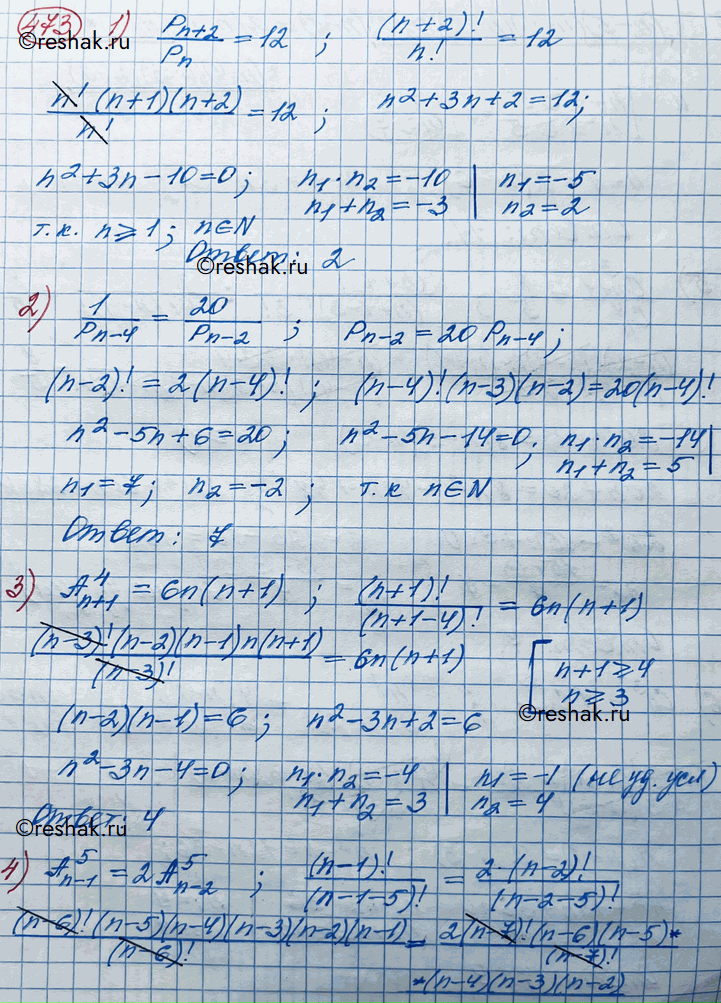 473 1) P_{n+2}/P_n = 12 ; (n+2)!/n! = 12
©reshak.ru
n!(n+1)(n+2)/n! = 12 ; n²+3n+2=12;
n²+3n-10=0; n₁·n₂=-10 | n₁=-5
n₁+n₂=-3 | n₂=2
т.к. n⩾1; n∈N
Ответ: 2
©reshak.ru
2) 1/P_{n-4} = 20/P_{n-2} ; P_{n-2} = 20 P_{n-4};
(n-2)! = 2(n-4)! ; (n-4)!(n-3)(n-2)=20(n-4)!
n²-5n+6=20; n²-5n-14=0; n₁·n₂=-14 |
n₁+n₂=5 |
n₁=7; n₂=-2 ; т.к n∈N
Ответ: 7
3) A⁴_{n+1} = 6n(n+1) ; (n+1)!/(n+1-4)! = 6n(n+1)
(n-3)!(n-2)(n-1)n(n+1)/(n-3)! = 6n(n+1) [ n+1⩾4
n⩾3
©reshak.ru
(n-2)(n-1)=6; n²-3n+2=6
n²-3n-4=0; n₁·n₂=-4 | n₁=-1 (не уд. усл)
n₁+n₂=3 | n₂=4
Ответ: 4
©reshak.ru
4) A⁵_{n-1} = 2A⁵_{n-2} ; (n-1)!/(n-1-5)! = 2·(n-2)!/(n-2-5)!
(n-6)!(n-5)(n-4)(n-3)(n-2)(n-1)/(n-6)! = 2(n-7)!(n-6)(n-5)*/(n-7)!
*(n-4)(n-3)(n-2)